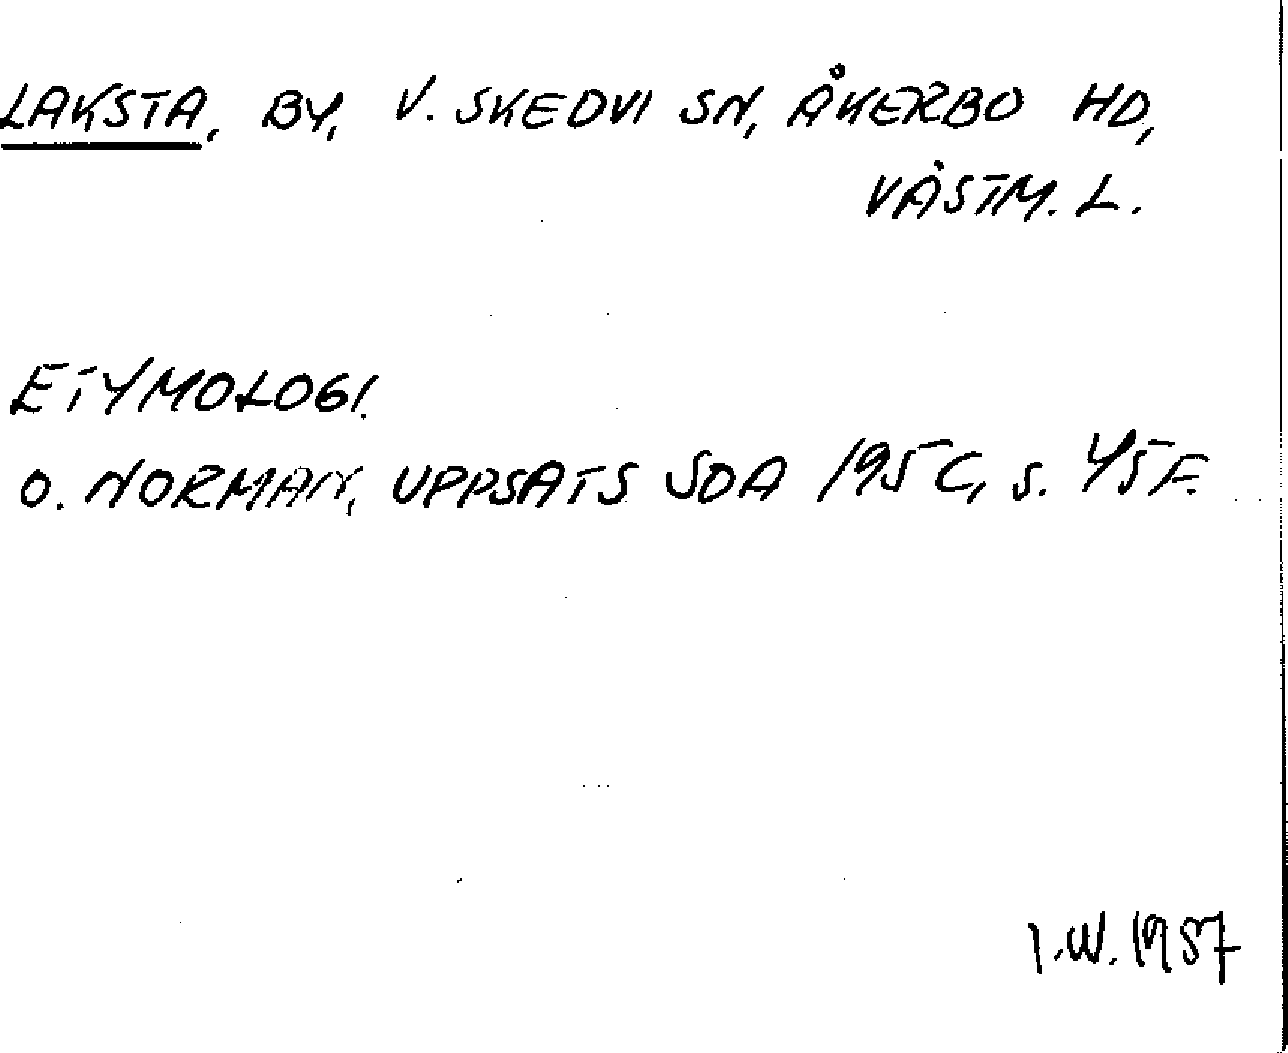 LAKSTA, BY, V. SKEDVI SN, ÅKERBO HD,
VÄSTM. L.
ETYMOLOGI.
O. NORMAN, UPPSATS SOA 1950, S. 45 F.
I.W. 1957